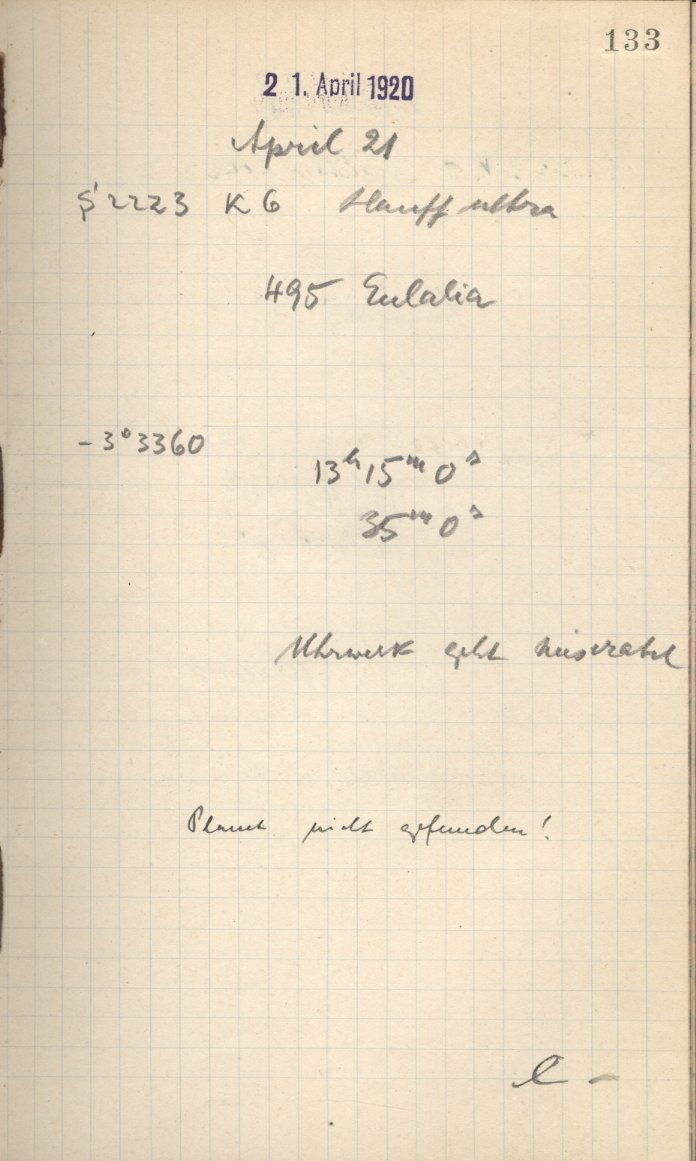 133
21. April 1920
April 21
S 2223 K 6 Hauff ultra
495 Eulalia
-3°3360
13h 15m 0s
35m 0s
Uhrwerk geht miserabel
Planet nicht gefunden!